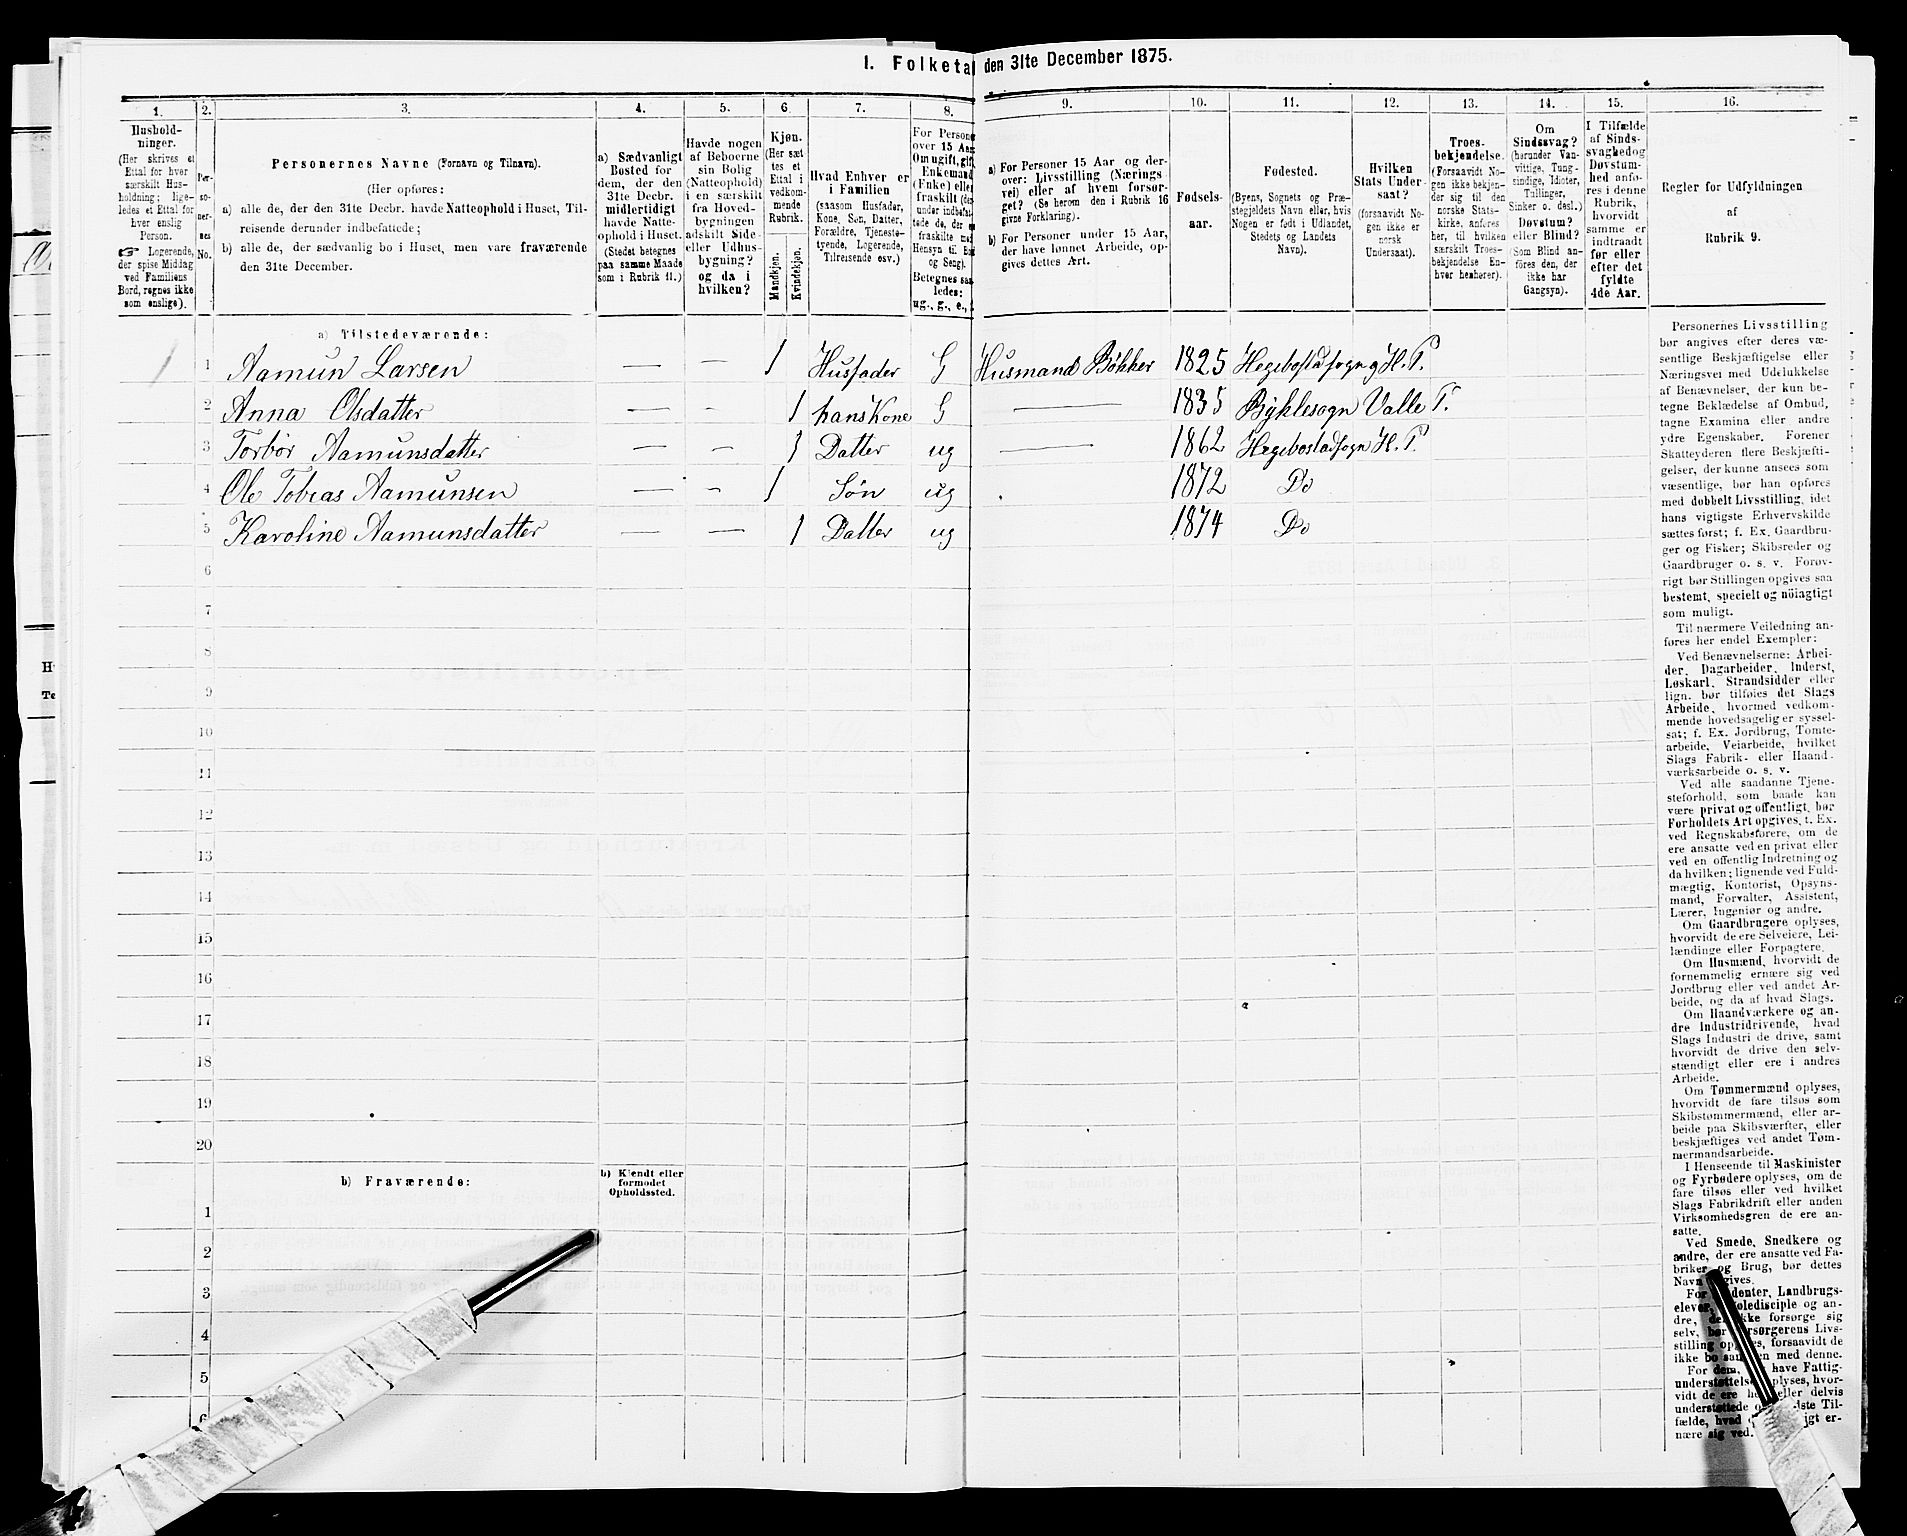 I. Folketal den 31te December 1875.
1. 2. 3. 4. 5. 6. 7. 8. 9. 10. 11. 12. 13. 14. 15. 16.
Hushold-
ninger.
(Her skrives et
Ettal for hver
særskilt Hus-
holdning; lige-
ledes et Ettal for
hver enslig
Person.
☞ Logerende,
der spise Middag
ved Familiens
Bord, regnes ikke
som enslige).
Per-
so-
ner-
nes
No.
Personernes Navne (Fornavn og Tilnavn).
(Her opføres:
a) alle de, der den 31te Decbr. havde Natteophold i Huset, Til-
reisende derunder indbefattede;
b) alle de, der sædvanlig bo i Huset, men vare fraværende
den 31te December.
a) Sædvanligt
Bosted for
dem, der den
31te Decbr.
midlertidigt
havde Natte-
ophold i Huset.
(Stedet betegnes
paa samme Maade
som i Rubrik 11.)
Havde nogen
af Beboerne
sin Bolig
(Natteophold)
i en særskilt
fra Hoved-
bygningen
adskilt Side-
eller Udhus-
bygning?
og da i
hvilken?
Kjøn.
(Her sæt
tes et
Ettal i
vedkom-
mende
Rubrik.
Mandkjøn.
Kvindekjøn.
Hvad Enhver er
i Familien
(saasom Husfader,
Kone, Søn, Datter,
Forældre, Tjeneste-
tyende, Logerende,
Tilreisende osv.)
For Persone
over 15 Aar
Om ugift, gift,
Enkemand
(Enke) eller
fraskilt (der-
under indbefat-
tede de, der ere
fraskilte med
Hensyn til Bord
og Seng).
Betegnes saa-
ledes:
ug., g., e.,
a) For Personer 15 Aar og der-
over: Livsstilling (Nærings-
vei) eller af hvem forsør-
get? (Se herom den i Rubrik 16
givne Forklaring).
b) For Personer under 15 Aar,
der have lønnet Arbeide, op-
gives dettes Art.
Fødsels-
aar.
Fødested.
(Byens, Sognets og Præ-
stegjeldets Navn eller, hvis
Nogen er født i Udlandet,
Stedets og Landets
Navn).
Hvilken
Stats Under-
saat?
(forsaavidt No-
gen ikke er
norsk
Undersaat).
Troes-
bekjendelse.
(Forsaavidt No-
gen ikke bekjen-
der sig til den
norske Stats-
kirke, anføres
her, til hvilken
særskilt Troes-
bekjendelse En-
hver henhører).
Om
Sindssvag?
(herunder Van-
vittige, Tung-
sindige, Idioter,
Tullinger,
Sinker o. desl.)
Døvstum?
eller Blind?
(Som Blind an-
føres den, der
ikke har
Gangsyn).
I Tilfælde
af Sinds-
svaghed og
Døvstum-
hed anfø-
res i denne
Rubrik,
hvorvidt
samme er
indtraadt
før eller
efter det
fyldte
4de Aar.
Regler for Udfyldningen
af
Rubrik 9.
a) Tilstedeværende:
1 1 Aamun Larsen — — 1 Husfader G Husmand Bøkker 1825 Hegebostadsogn og H. P.
2 Anna Olsdatter 1 hans Kone G — 1835 Byklesogn Valle P.
3 Torbør Aamunsdatter — — 1 Datter ug — 1862 Hegebostadsogn H. P.
4 Ole Tobias Aamunsen — — 1 Søn ug 1872 Do
5 Karoline Aamunsdatter — — 1 Datter ug 1874 Do
6
7
8
9
10
11
12
13
14
15
16
17
18
19
20
b) Fraværende:
b) Kjendt eller
formodet
Opholdssted.
1
2
3
4
5
6
Personernes Livsstilling
bør angives efter deres væ-
sentlige Beskjæftigelse eller
Næringsvei med Udelukkelse
af Benævnelser, der kun be-
tegne Beklædelse af Ombud,
tagne Examina eller andre
ydre Egenskaber. Forener
Skatteyderen flere Beskjæfti-
gelser, der kunne ansees som
væsentlige, bør han opføres
med dobbelt Livsstilling, idet
hans vigtigste Erhvervskilde
sættes først; f. Ex. Gaardbru-
ger og Fisker; Skibsreder og
Gaardbruger o. s. v. Forøv-
rigt bør Stillingen opgives saa
bestemt, specielt og nöiagtigt
som muligt.
Til nærmere Veiledning an-
føres her endel Exempler:
Ved Benævnelserne: Arbei-
der, Dagarbeider, Inderst,
Løskarl, Strandsidder eller
lign. bør tilføies det Slags
Arbeide, hvormed vedkom-
mende hovedsagelig er syssel-
sat; f. Ex. Jordbrug, Tomte-
arbeide, Veiarbeide, hvilket
Slags Fabrik- eller Haand-
værksarbeide o. s. v.
Ved alle saadanne Tjene-
steforhold, som baade kan
være privat og offentligt, bør
Forholdets Art opgives, t. Ex.
ved Regnskabsførere, om de
ere ansatte ved en privat eller
ved en offentlig Indretning og
da hvilken; lignende ved Fuld-
mægtig, Kontorist, Opsyns-
mand, Forvalter, Assistent,
Lærer, Ingeniør og andre.
Om Gaardbrugere oplyses,
hvorvidt de ere Selveiere, Lei-
lændinge eller Forpagtere.
Om Husmænd, hvorvidt de
fornemmelig ernære sig ved
Jordbrug eller ved andet Ar-
beide, og da af hvad Slags.
Om Haandværkere og an-
dre Industridrivende, hvad
Slags Industri de drive, samt
hvorvidt de drive den selv-
stændigt eller ere i andres
Arbeide.
Om Tømmermænd oplyses,
hvorvidt de fare tilsøs som
Skibstømmermænd, eller ar-
beide paa Skibsværfter, eller
beskjæftiges ved andet Tøm-
mermandsarbeide.
I Henseende til Maskinister
og Fyrbødere oplyses, om de
fare tilsøs eller ved hvilket
Slags Fabrikdrift eller anden
Virksomhedsgren de ere an-
satte.
Ved Smede, Snedkere og
andre, der ere ansatte ved Fa-
briker og Brug, bør dettes
Navn gives.
For denter, Landbrugs-
elever, oledisciple og an-
dre, de ikke forsørge sig
selv, bør rsørgerens Livs-
stilling op s, forsaavidt de
ikke bo sam en med denne.
For dem, have Fattig-
understøttelse, plyses, hvor-
vidt de ere hel eller delvis
understøttede o dste Til-
fælde, hvad igt er-
nære sig ved.